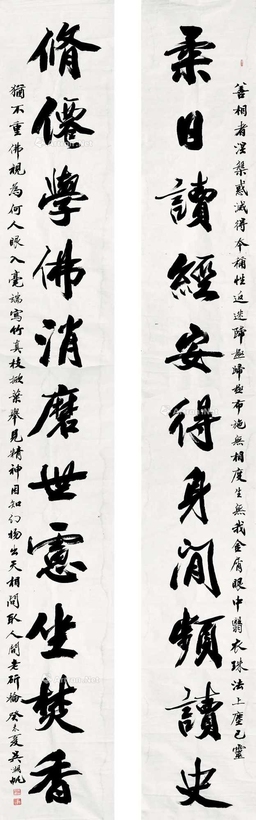 善相者涅槃惑滅得本稱性迷歸極歸極布施無相度生無我金屑眼中翳衣珠法上塵己靈
柔日讀經安得身閒頻讀史
脩僊學佛消磨世慮坐焚香
猶不重佛視為何人眼入毫端寫竹真枝掀葉舉見精神因知幻物出天相間取人間老斫輪癸未夏吳湖帆